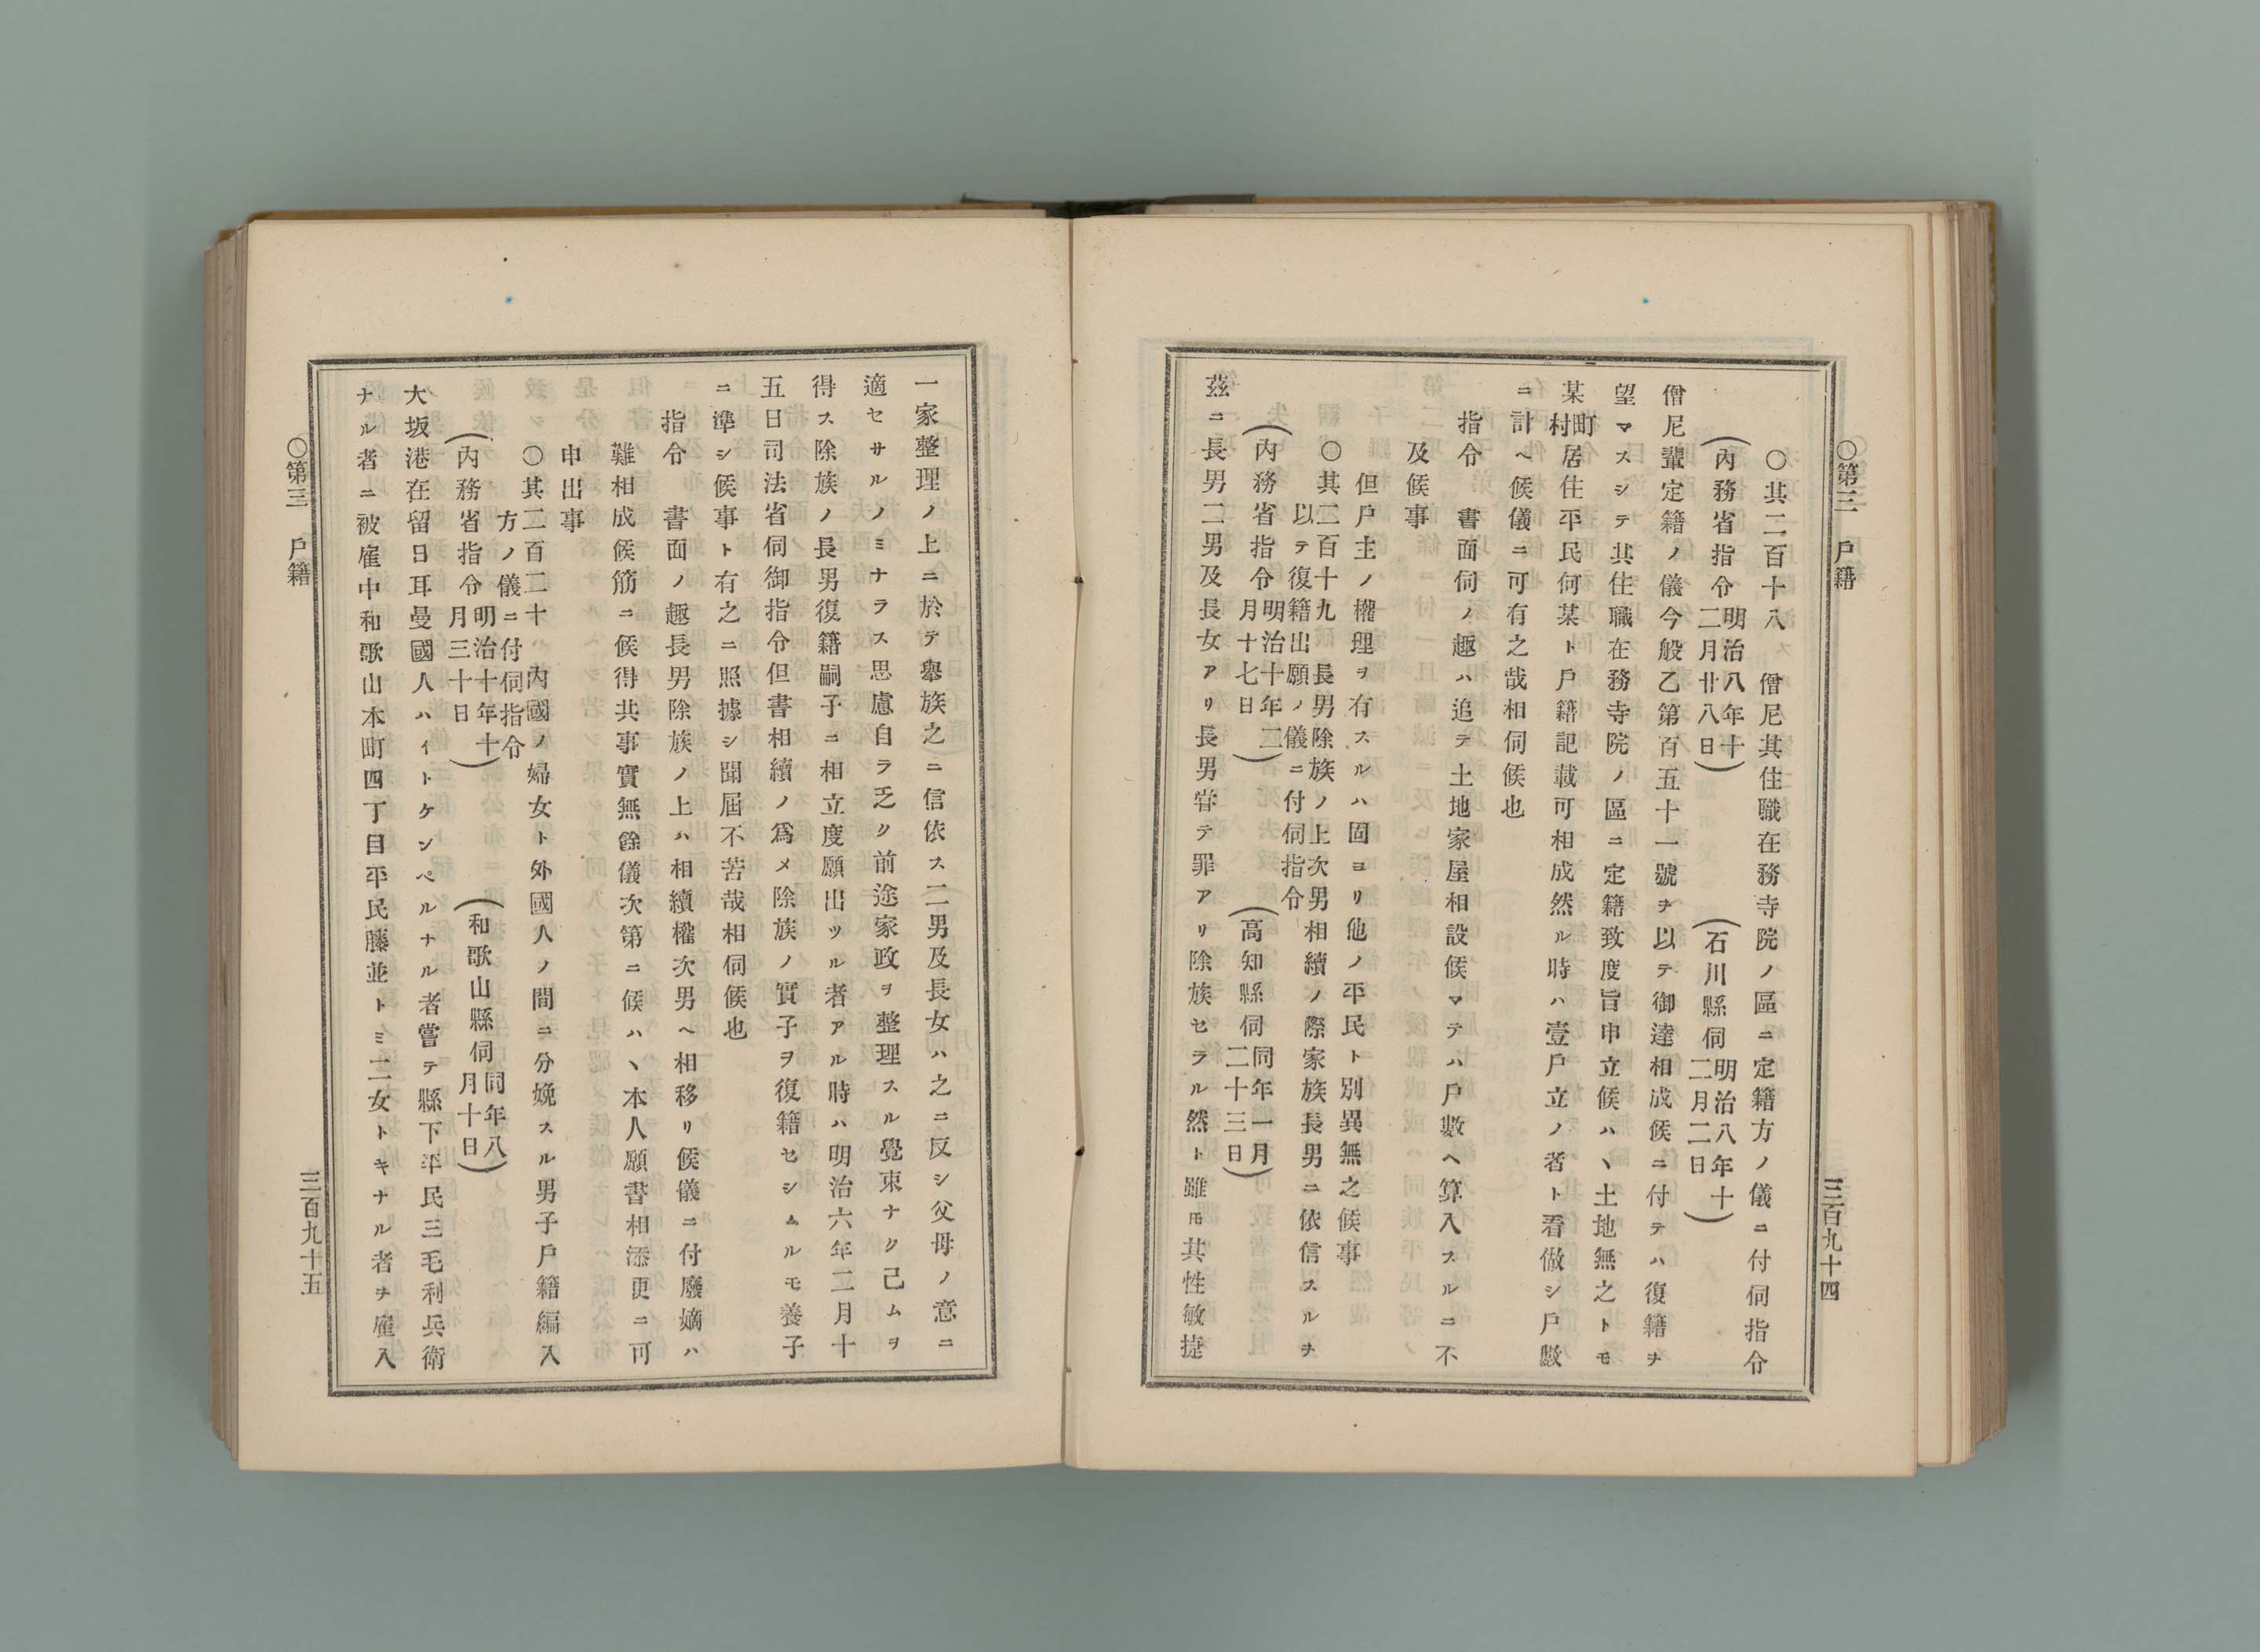 〇第三　戶籍
三百九十四
〇其二百十八　僧尼其住職在務寺院ノ區ニ定籍方ノ儀ニ付伺指令
(內務省指令明治八年十二月廿八日)　(石川縣伺明治八年十二月二日)
僧尼輩定籍ノ儀今般乙第百五十一號ヲ以テ御達相成候ニ付テハ復籍ヲ
望マスシテ其住職在務寺院ノ區ニ定籍致度旨申立候ハヽ土地無之トモ
某町村居住平民何某ト戶籍記載可相成然ル時ハ壹戶立ノ者ト看做シ戶數
ニ計ヘ候儀ニ可有之哉相伺候也
指令　書面伺ノ趣ハ追テ土地家屋相設候マテハ戶數ヘ算入スルニ不
及候事
但戶主ノ權理ヲ有スルハ固ヨリ他ノ平民ト別異無之候事
〇其二百十九　長男除族ノ上次男相續ノ際家族長男ニ依信スルヲ
以テ復籍出願ノ儀ニ付伺指令
(內務省指令明治十年二月十七日)　(高知縣伺同年一月二十三日)
茲ニ長男二男及長女アリ長男甞テ罪アリ除族セラル然ト雖モ其性敏捷
一家整理ノ上ニ於テ擧族之ニ信依ス二男及長女ハ之ニ反シ父母ノ意ニ
適セサルノミナラス思慮自ラ乏ク前途家政ヲ整理スル覺束ナク己ムヲ
得ス除族ノ長男復籍嗣子ニ相立度願出ツル者アル時ハ明治六年二月十
五日司法省伺御指令但書相續ノ爲メ除族ノ實子ヲ復籍セシムルモ養子
ニ準シ候事ト有之ニ照據シ聞屆不苦哉相伺候也
指令　書面ノ趣長男除族ノ上ハ相續權次男ヘ相移リ候儀ニ付廢嫡ハ
難相成候筋ニ候得共事實無餘儀次第ニ候ハヽ本人願書相添更ニ可
申出事
〇其二百二十　內國ノ婦女ト外國人ノ間ニ分娩スル男子戶籍編入
方ノ儀ニ付伺指令
(內務省指令明治十年十月三十日)　(和歌山縣伺同年八月十日)
大坂港在留日耳曼國人ハイトケンペルナル者嘗テ縣下平民三毛利兵衛
ナル者ニ被雇中和歌山本町四丁目平民藤並トミ二女トキナル者ヲ雇入
〇第三　戶籍
三百九十五